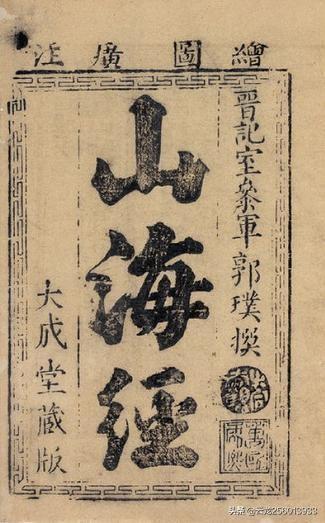 繪圖廣注
晉記室參軍郭璞撰
山海經
大成堂藏版
頭条 @云龙256013933